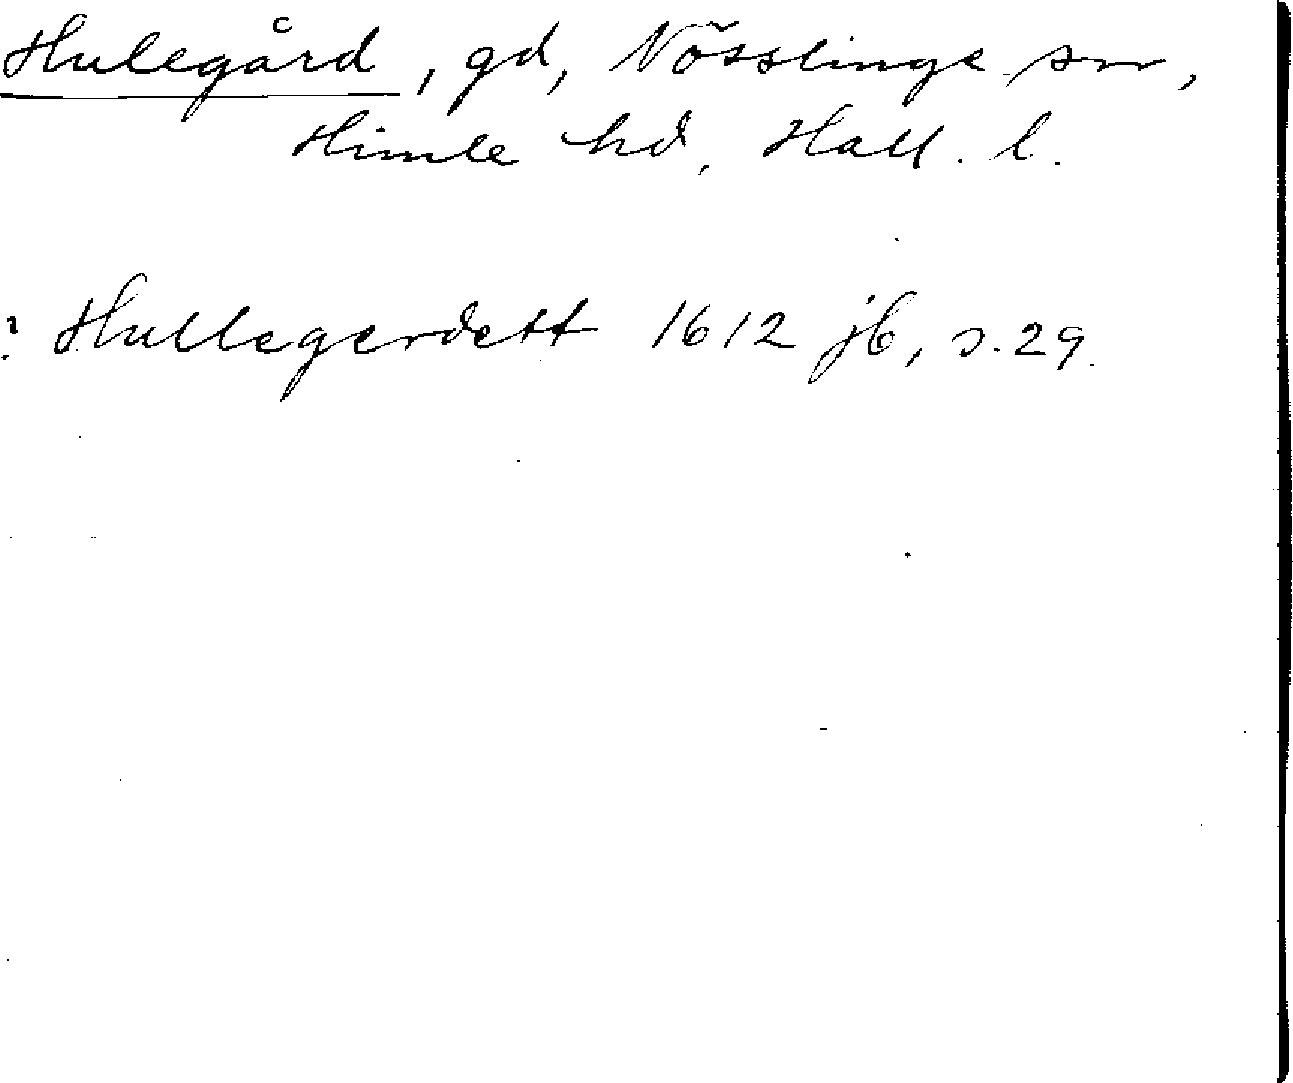 Hulegård, gd, Nösslinge sn,
Himle hd, Hall. l.
: Hullegerdett 1612 jb, s. 29.